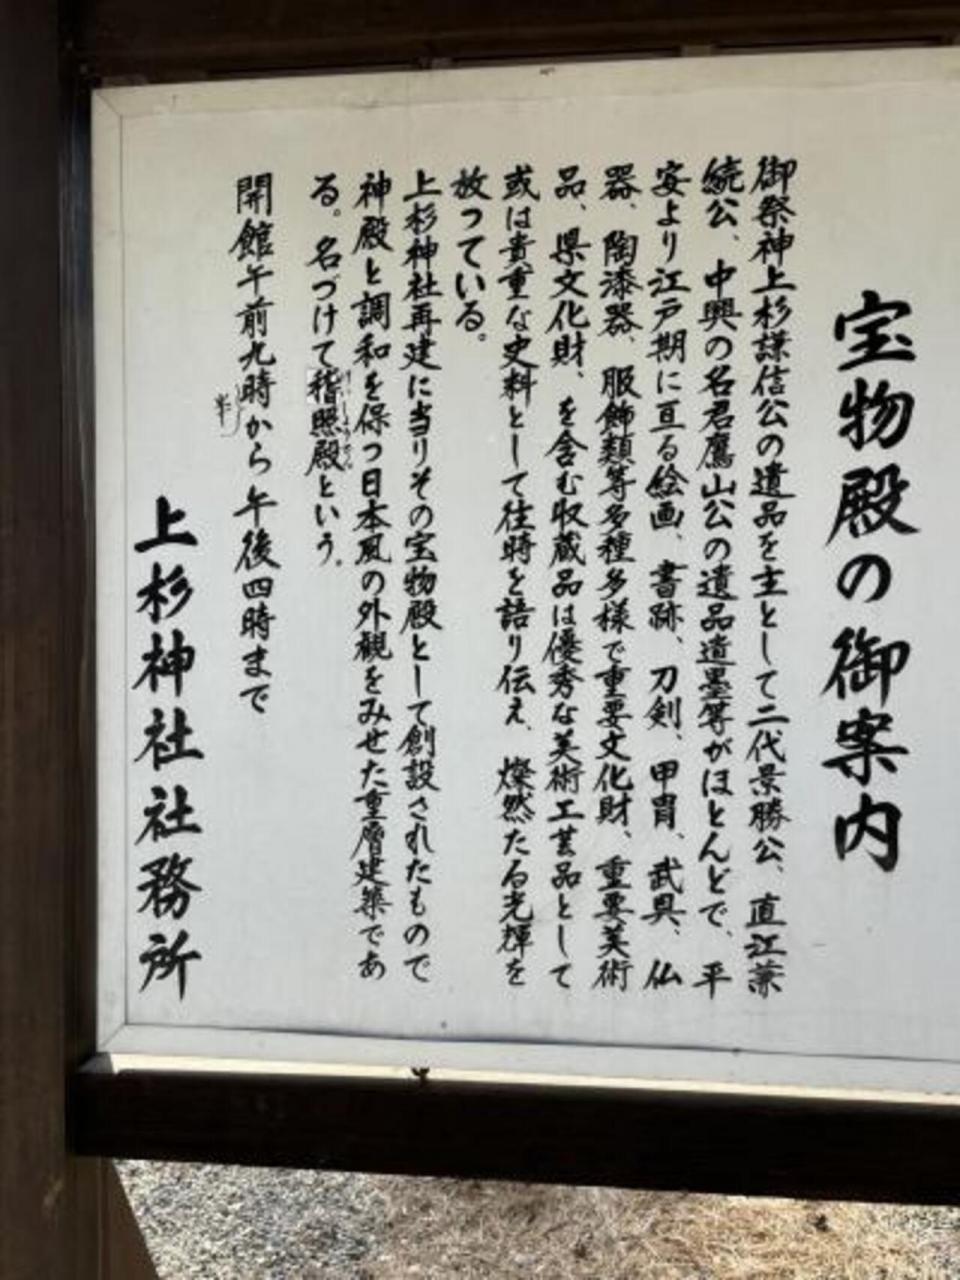 宝物殿の御案内
御祭神上杉謙信公の遺品を主として二代景勝公、直江兼
続公、中興の名君鷹山公の遺品遺墨等がほとんどで、平
安より江戸期に亘る絵画、書跡、刀剣、甲冑、武具、仏
器、陶漆器、服飾類等多種多様で重要文化財、重要美術
品、県文化財、を含む収蔵品は優秀な美術工芸品として
或は貴重な史料として往時を語り伝え、燦然たる光輝を
放っている。
上杉神社再建に当りその宝物殿として創設されたもので
神殿と調和を保つ日本風の外観をみせた重層建築であ
る。名づけて稽照殿という。
けいしょうでん
開館午前九時から午後四時まで
半
上杉神社社務所